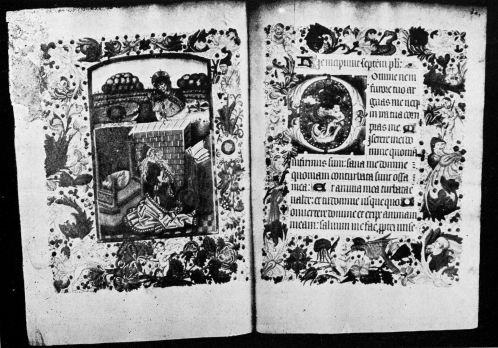 Hic incipiunt septem ps
Domine ne in
furore tuo ar
guas me neq
in ira tua cor
ripias me
serere mei do
mine quonia
infirmus sum: sana me domine
quoniam conturbata sunt ossa
mea: Et anima mea turbata e
valde: et tu domine usque quo
onvertere domine et eripe animam
meam: salvum me fac propter mise